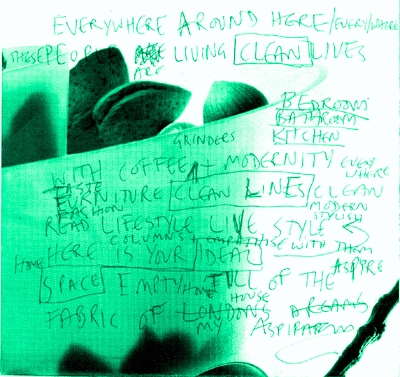 EVERYWHERE AROUND HERE/EVERYWHERE
THESE PEOPLE ARE LIVING CLEAN LIVES
ARE
BEDROOM
BATHROOM
KITCHEN
GRINDERS
WITH COFFEE + MODERNITY EVERY
WHERE
TASTE
FURNITURE CLEAN LINES/CLEAN
FASHION MODERN
STYLISH
READ LIFESTYLE LIVE STYLE
COLUMNS + EMPATHISE WITH THEM
HOME HERE IS YOUR IDEAL
ASPIRE
SPACE EMPTY/HOME FULL OF THE
HOUSE
FABRIC OF LONDONS DREAMS
MY ASPIRATIONS